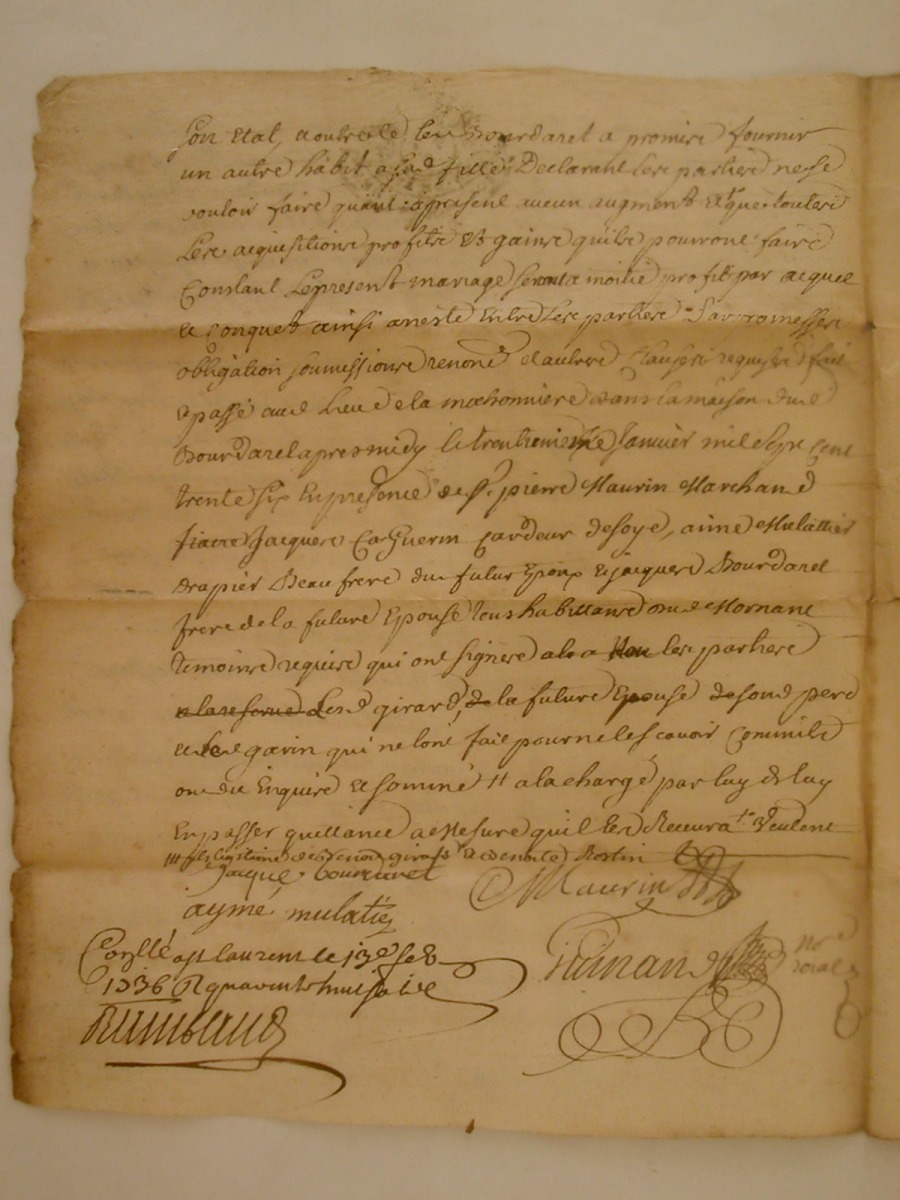 son Etal, et outre ce le Bourdarel a promis fournir
un autre habit a sad fille Declarant les parties ne se
vouloir faire quant apresent aucun augment et que toutes
Les acquisitions profits et gains quils pourront faire
Constant Lepresent mariage seront a moitié profit par acquet
et Conquet ainsi areste Entre Les parties par promesses
obligation soumissions renond et autres Clauses requises fait
et passé aud Lieu de la dans la maison dud
Bourdarel apres midy le trentieme Janvier mil sept cent
trente six En presence de sr pierre Maurin Marchand
fiacre Jacques Guerin Cardeur desoye, aimé Mulattier
drapier Beau frere du futur Epoux et jacques Bourdarel
frere de la future Epouse tous habittans dud Mornant
temoins requis qui ont signes avec les parties
a la reserve desd girard, de la future Epouse de sond pere
et led garin qui ne lont fait pour ne le scavoir Comme ils
ont dit Enquis et sommé a la charge par luy de luy
En passer quittance a Mesure quil les Recevra
girard Rostin
Jaque bourdarel
Maurin
aymé mulatié
Conllé a st laurent le 13e feb
1736 R quarante huit sols